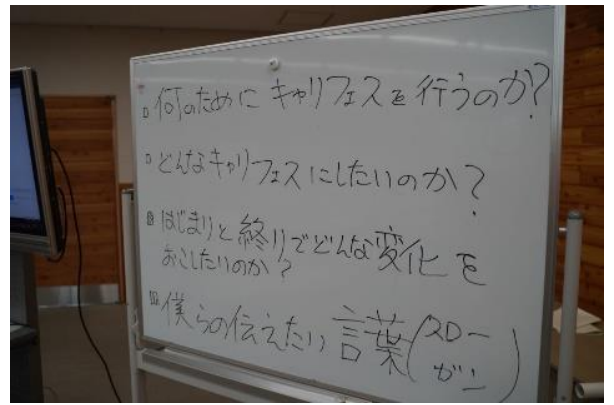 何のために キャリフェスを行うのか?
どんなキャリフェスにしたいのか?
はじまりと終りでどんな変化を
おこしたいのか?
僕らの伝えたい言葉(スローガン)